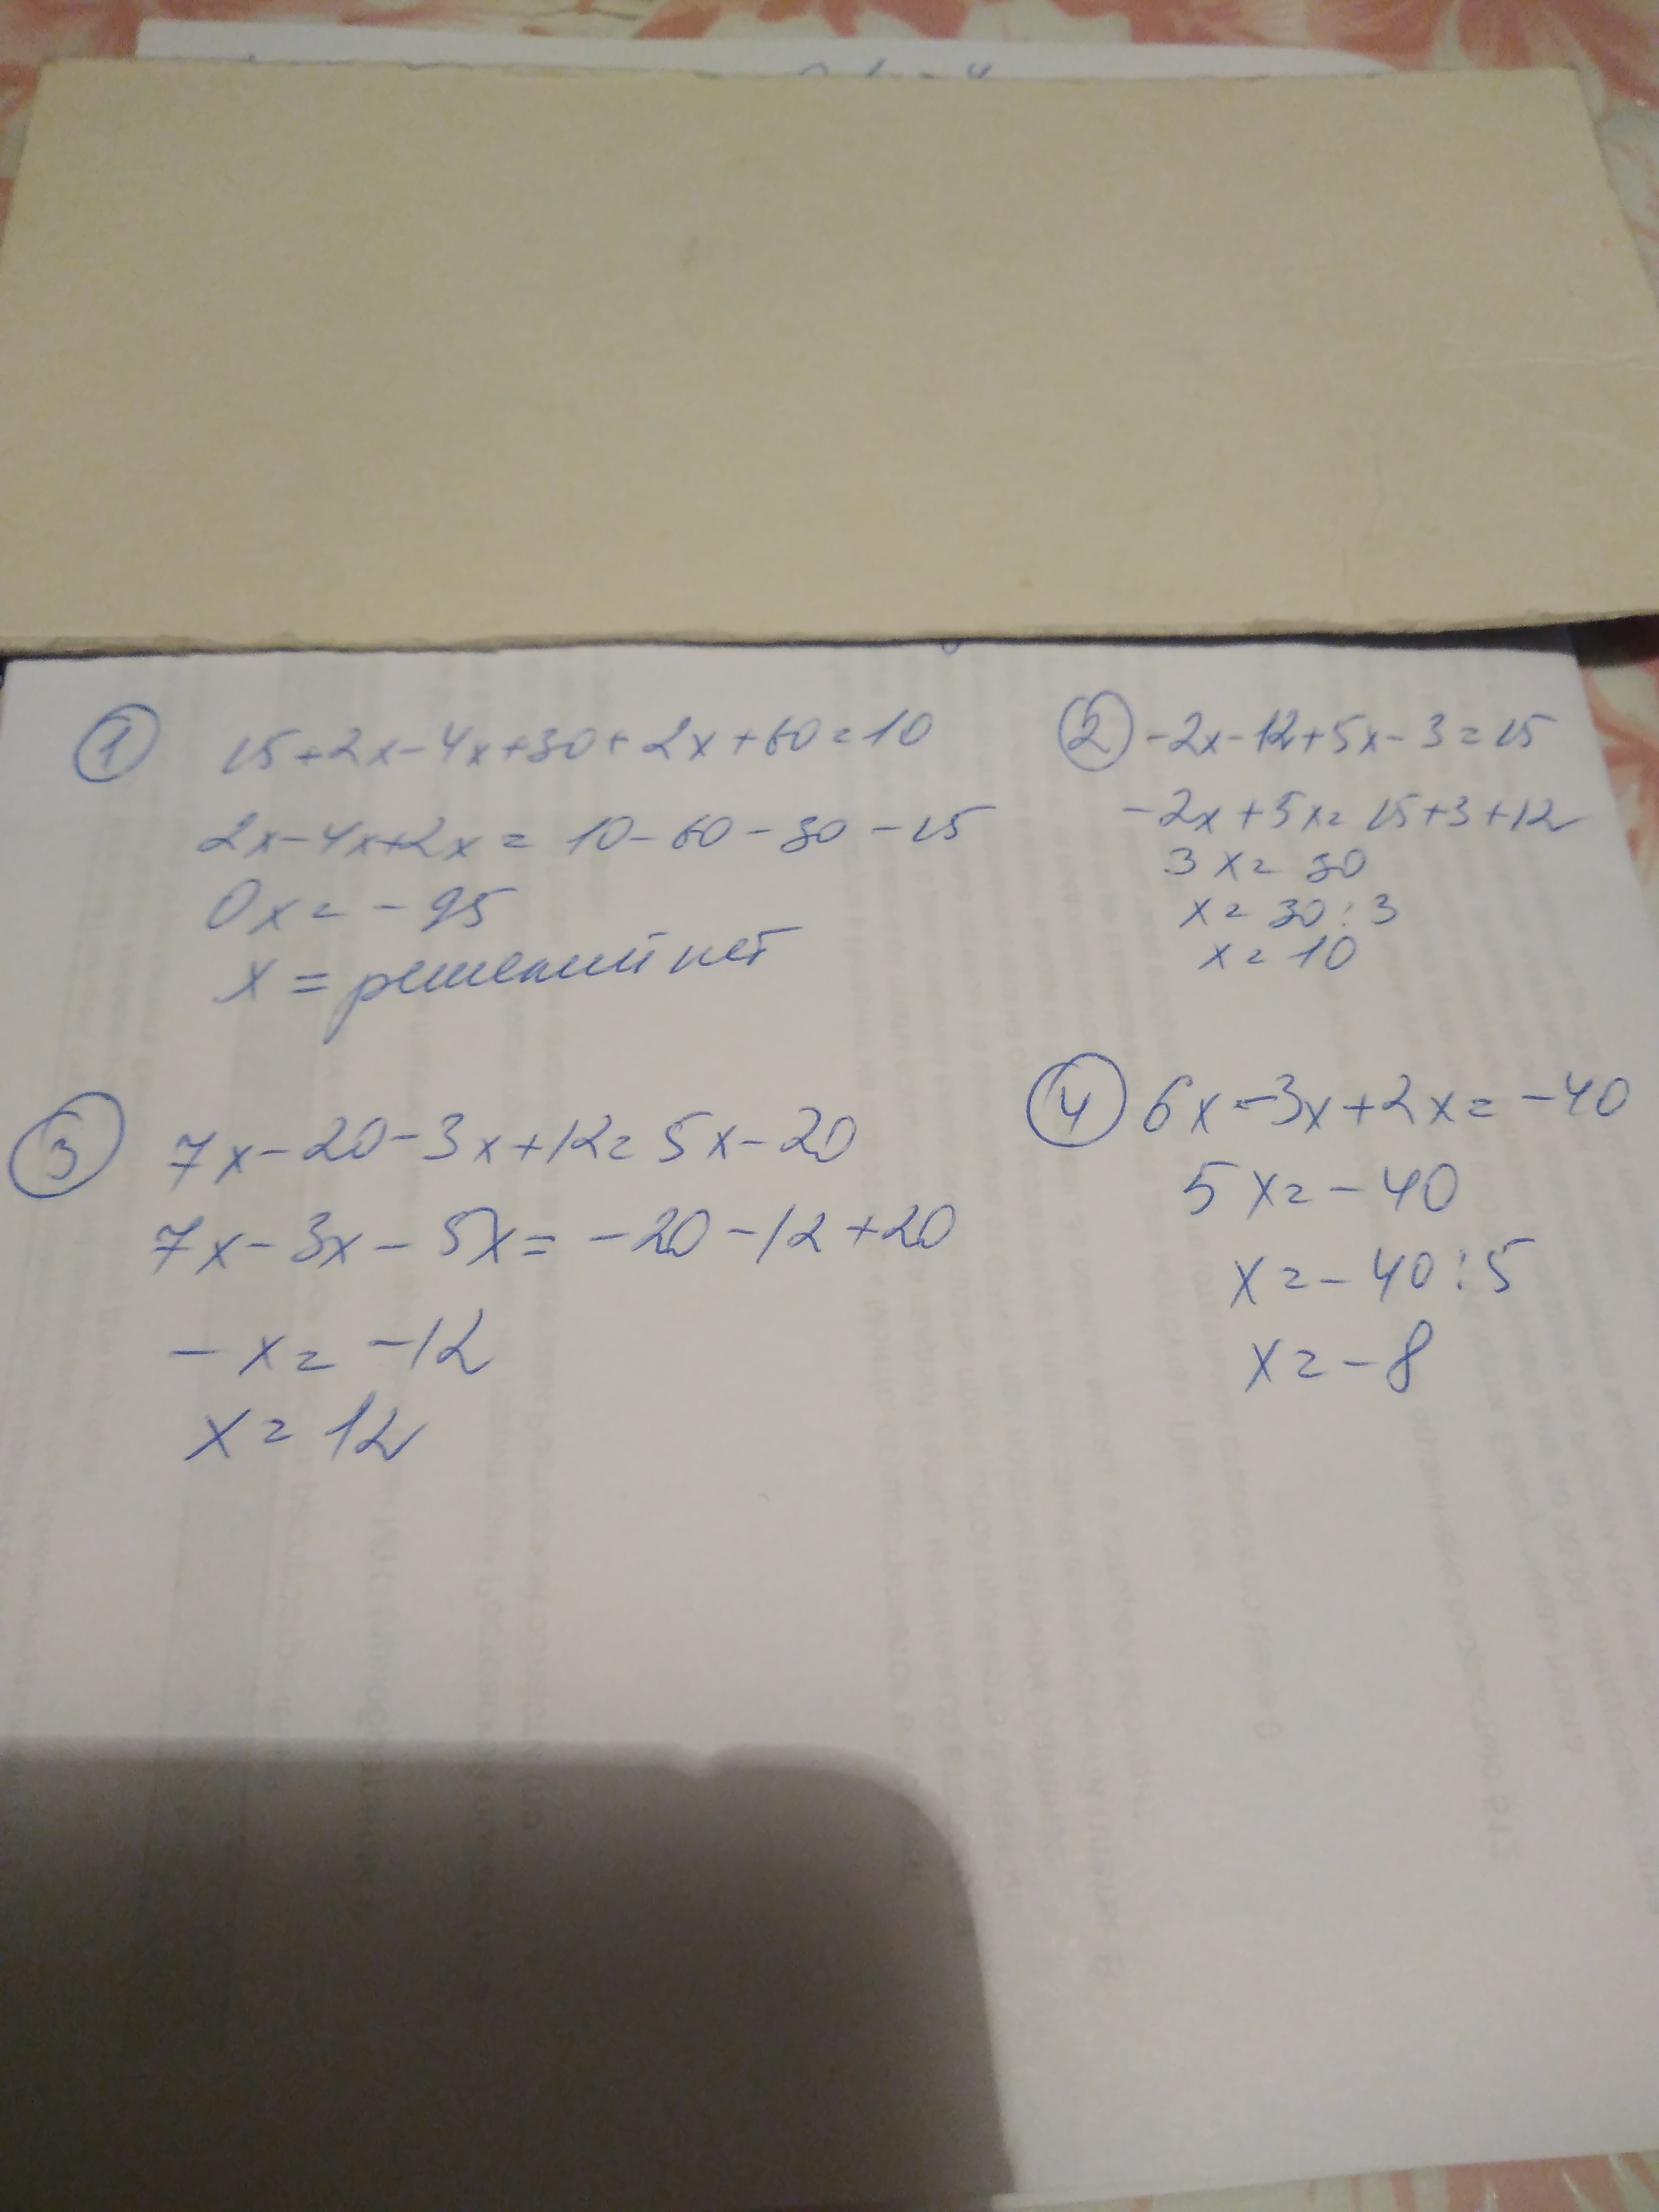 ① 15+2x-4x+30+2x+60=10
2x-4x+2x= 10-60-30-15
0x=-95
x = решений нет
② -2x-12+5x-3=15
-2x+5x=15+3+12
3x=30
x=30:3
x=10
③ 7x-20-3x+12=5x-20
7x-3x-5x=-20-12+20
-x=-12
x=12
④ 6x-3x+2x=-40
5x=-40
x=-40:5
x=-8